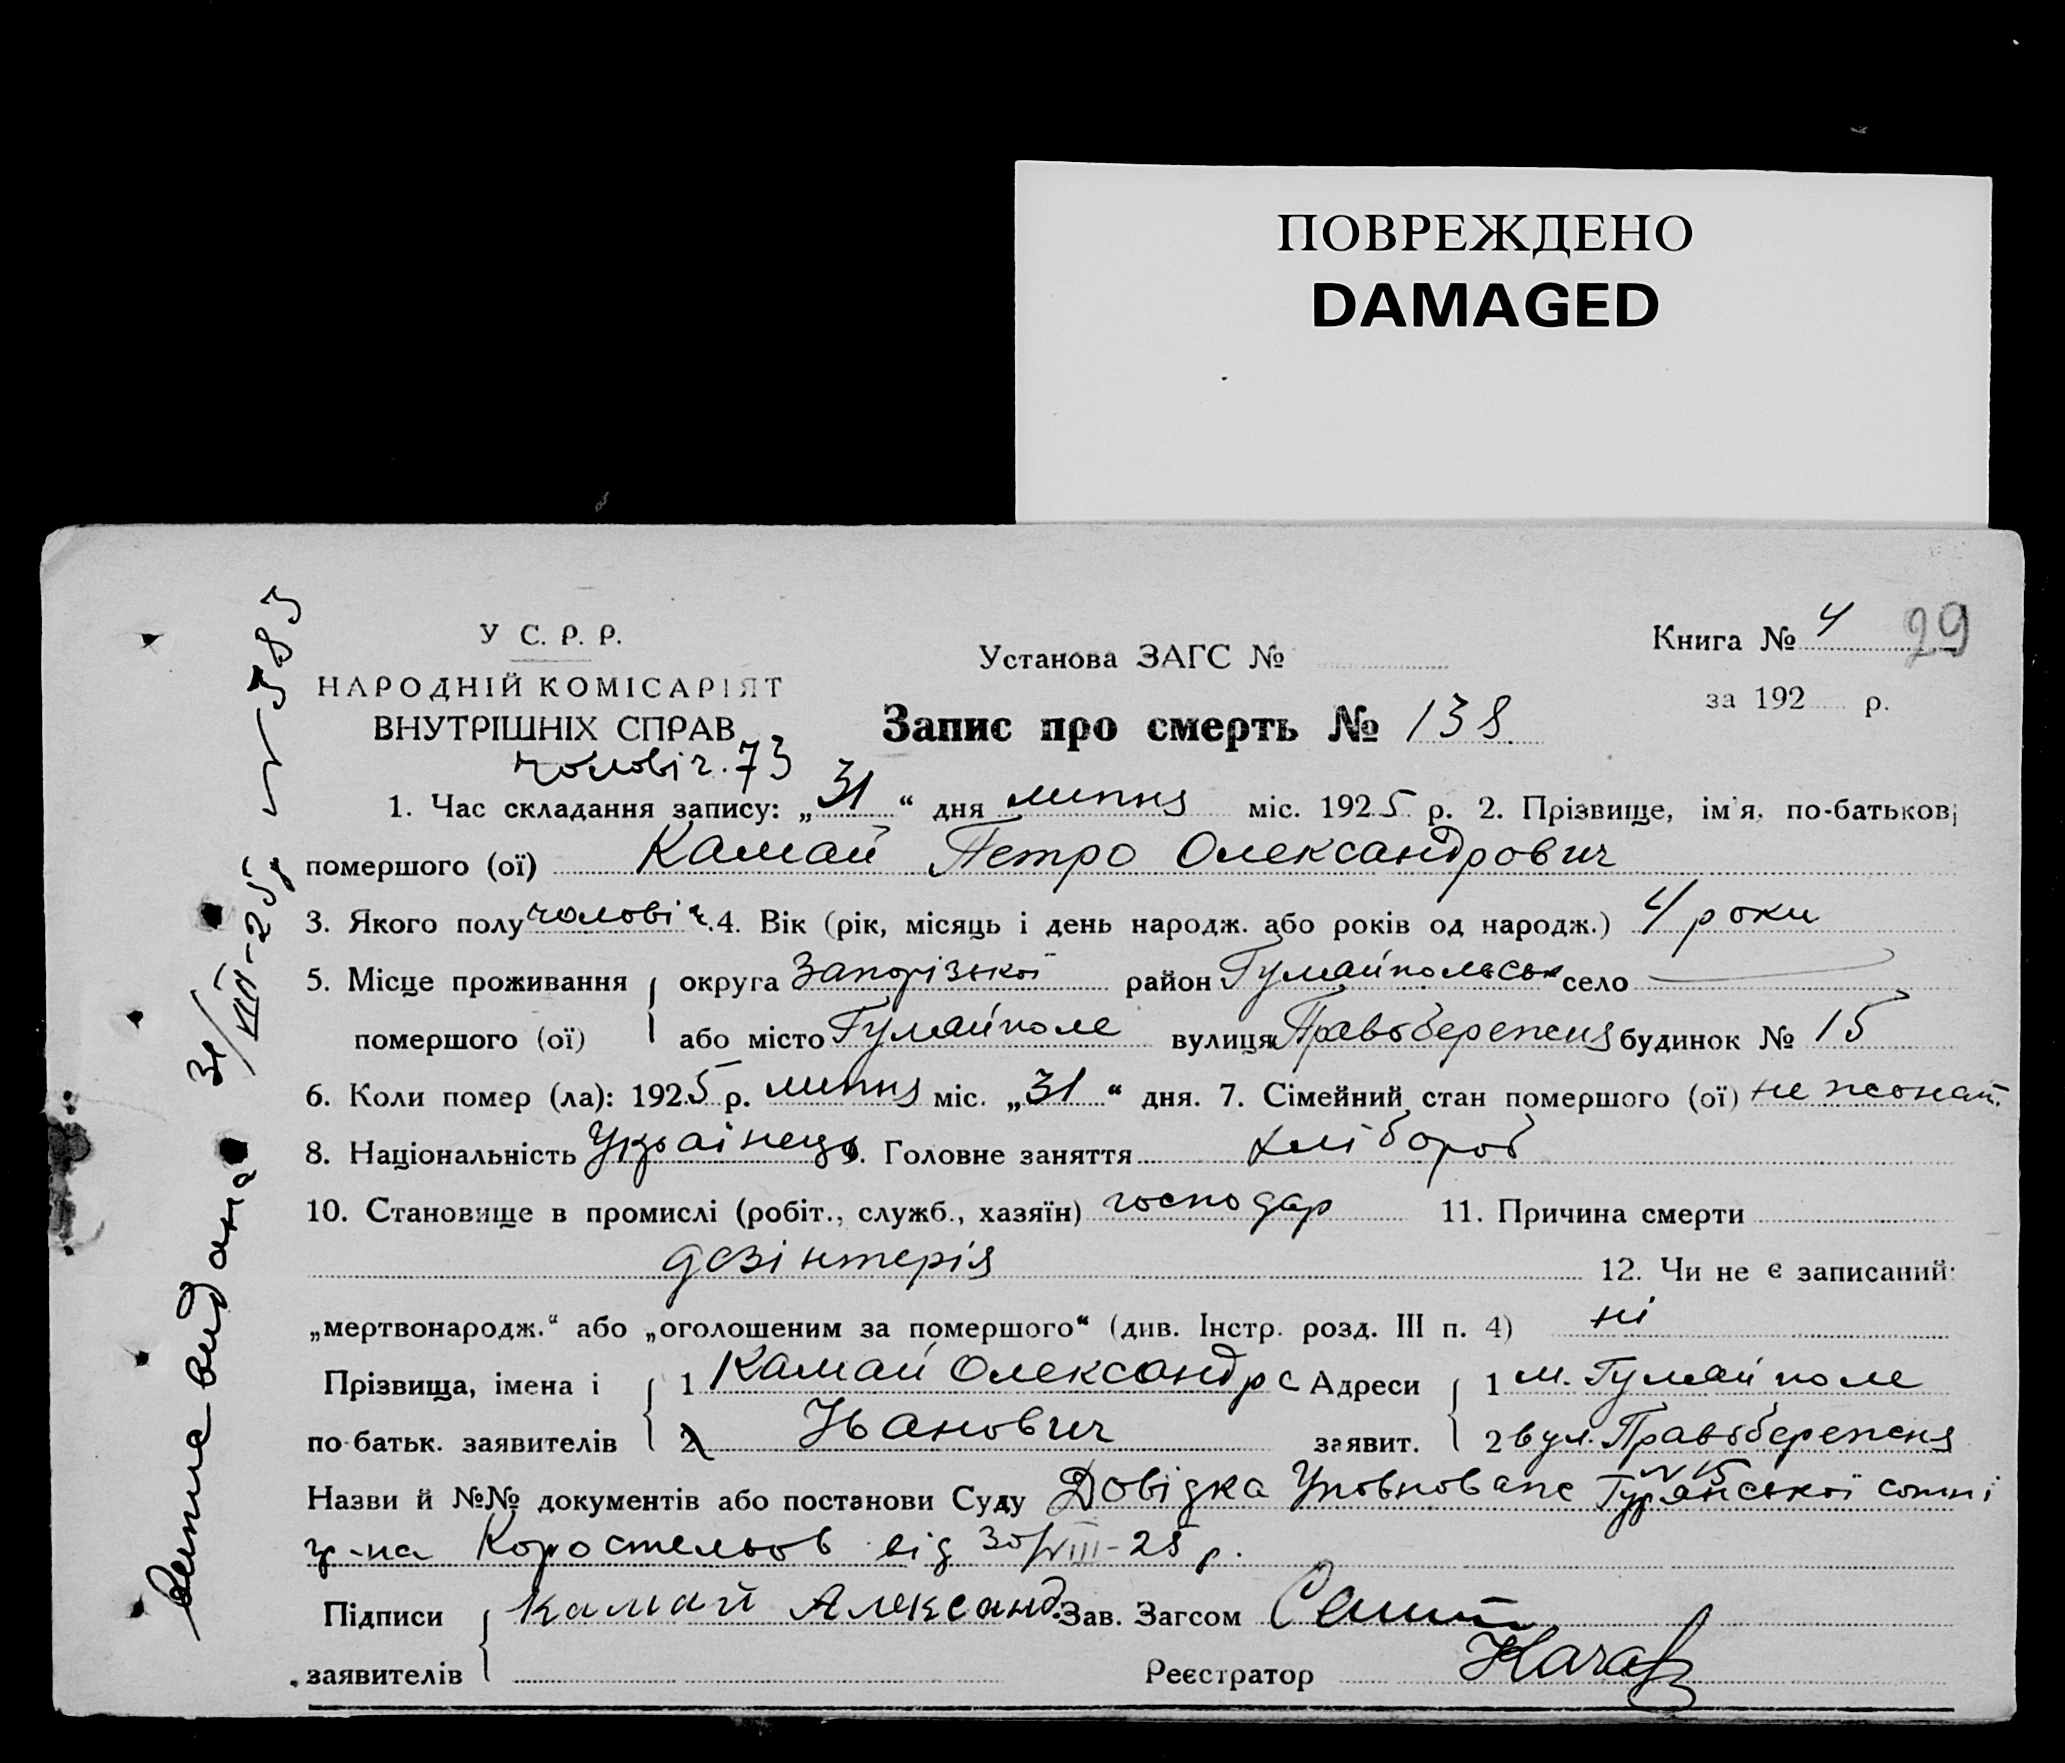 ПОВРЕЖДЕНО
DAMAGED
У С. Р. Р.
НАРОДНІЙ КОМІСАРІЯТ
ВНУТРІШНІХ СПРАВ
Установа ЗАГС №
Книга № 4 29
за 192 р.
Запис про смерть № 138
чоловіч. 73
1. Час складання запису: „31“ дня липня міс. 1925 р. 2. Прізвище, ім'я, по-батькові
помершого (ої) Камай Петро Олександрович
3. Якого полу чоловіч. 4. Вік (рік, місяць і день народж. або років од народж.) 4 роки
5. Місце проживання округа Запорізької район Гуляйпольськ село
помершого (ої) або місто Гуляйполе вулиця Правобережня будинок № 15
6. Коли помер (ла): 1925 р. липня міс. „31“ дня. 7. Сімейний стан помершого (ої) не жонат.
8. Національність Українець 9. Головне заняття хлібороб
10. Становище в промислі (робіт., служб., хазяїн) господар 11. Причина смерти
дезінтерія 12. Чи не є записаний:
„мертвонародж.“ або „оголошеним за помершого“ (див. Інстр. розд. III п. 4) ні
Прізвища, імена і 1 Камай Олександр Адреси 1 м. Гуляй поле
по-батьк. заявителів 2 Іванович заявит. 2 вул. Правобережня
№ 15
Назви й №№ документів або постанови Суду Довідка Уповноваж сотні
гр-на Коростельов від 30/VIII-25 р.
Підписи Камай Александ. Зав. Загсом
заявителів Реєстратор
видана 31/VII-25р № 583